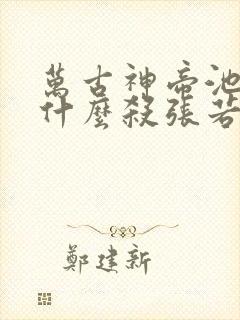 萬古神帝池
什麼殺張若
鄭建新